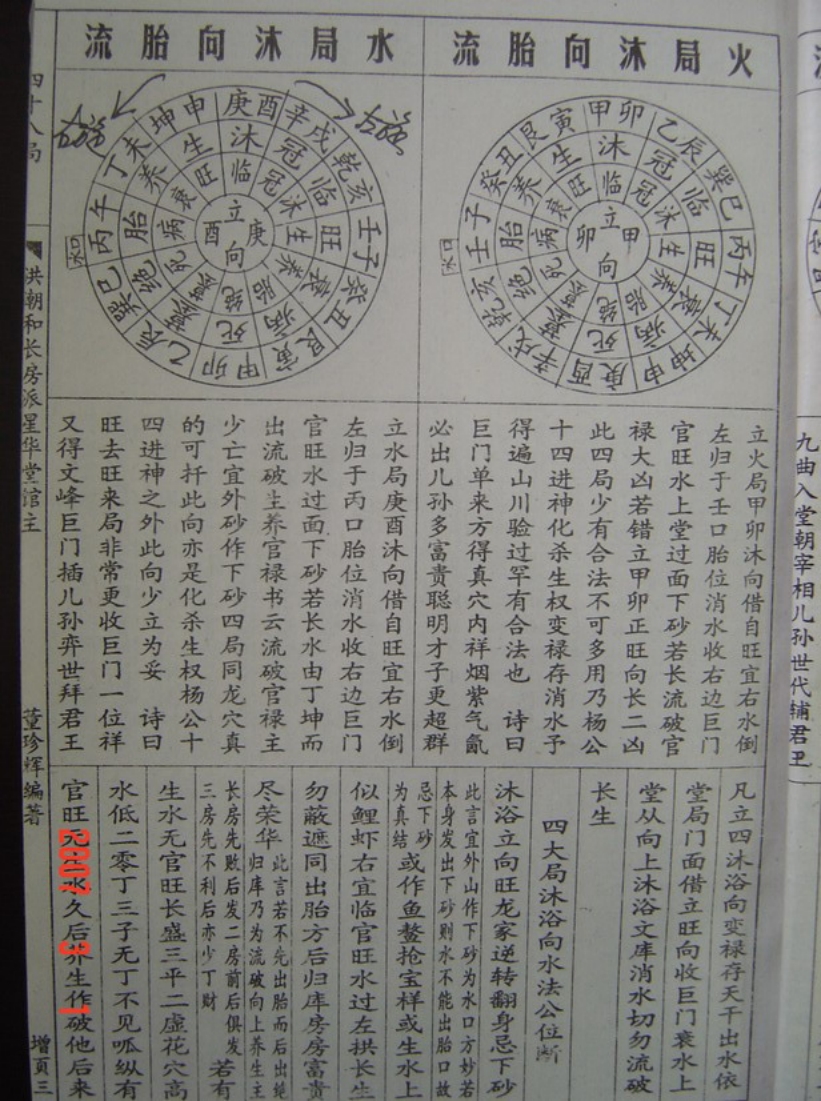 火局沐向胎流
水局沐向胎流
甲卯
乙辰
巽巳
丙午
丁未
坤申
庚酉
辛戌
乾亥
壬子
癸丑
艮寅
沐
冠
临
旺
衰
病
死
墓
绝
胎
养
生
临
冠
沐
生
养
胎
绝
墓
死
病
衰
旺
立
甲
向
卯
水口
庚酉
辛戌
乾亥
壬子
癸丑
艮寅
甲卯
乙辰
巽巳
丙午
丁未
坤申
沐
冠
临
旺
衰
病
死
墓
绝
胎
养
生
临
冠
沐
生
养
胎
绝
墓
死
病
衰
旺
立
庚
向
酉
水口
立火局甲卯沐向借自旺宜右水倒
左归于壬口胎位消水收右边巨门
官旺水上堂过面下砂若长流破官
禄大凶若错立甲卯正旺向长二凶
此四局少有合法不可多用乃杨公
十四进神化杀生权变禄存消水予
得遍山川验过罕有合法也 诗曰
巨门单来方得真穴内祥烟紫气氤
必出儿孙多富贵聪明才子更超群
立水局庚酉沐向借自旺宜右水倒
左归于丙口胎位消水收右边巨门
官旺水过面下砂若长水由丁坤而
出流破生养官禄书云流破官禄主
少亡宜外砂作下砂四局同龙穴真
的可扦此向亦是化杀生权杨公十
四进神之外此向少立为妥 诗曰
旺去旺来局非常更收巨门一位祥
又得文峰巨门插儿孙弈世拜君王
凡立四沐浴向变禄存天干出水依
堂局门面借立旺向收巨门衰水上
堂从向上沐浴文库消水切勿流破
长生
四大局沐浴向水法公位断
沐浴立向旺龙家逆转翻身忌下砂
此言宜外山作下砂为水口方妙若
本身发出下砂则水不能出胎口故
忌下砂
为真结
或作鱼鳌抢宝样或生水上
似鲤虾右宜临官旺水过左拱长生
勿蔽遮同出胎方后归库房房富贵
尽荣华
此言若不先出胎而后出绝
归库乃为流破向上养生主
长房先败后发二房前后俱发
三房先不利后亦少丁财
若有
生水无官旺长盛三平二虚花穴高
水低二零丁三子无丁不见呱纵有
官旺无 水久后养生作破他后来
四十八局
洪朝和长房派星华堂馆主
董珍辉编著
增页三
九曲入堂朝宰相儿孙世代辅君王
2007 3 1